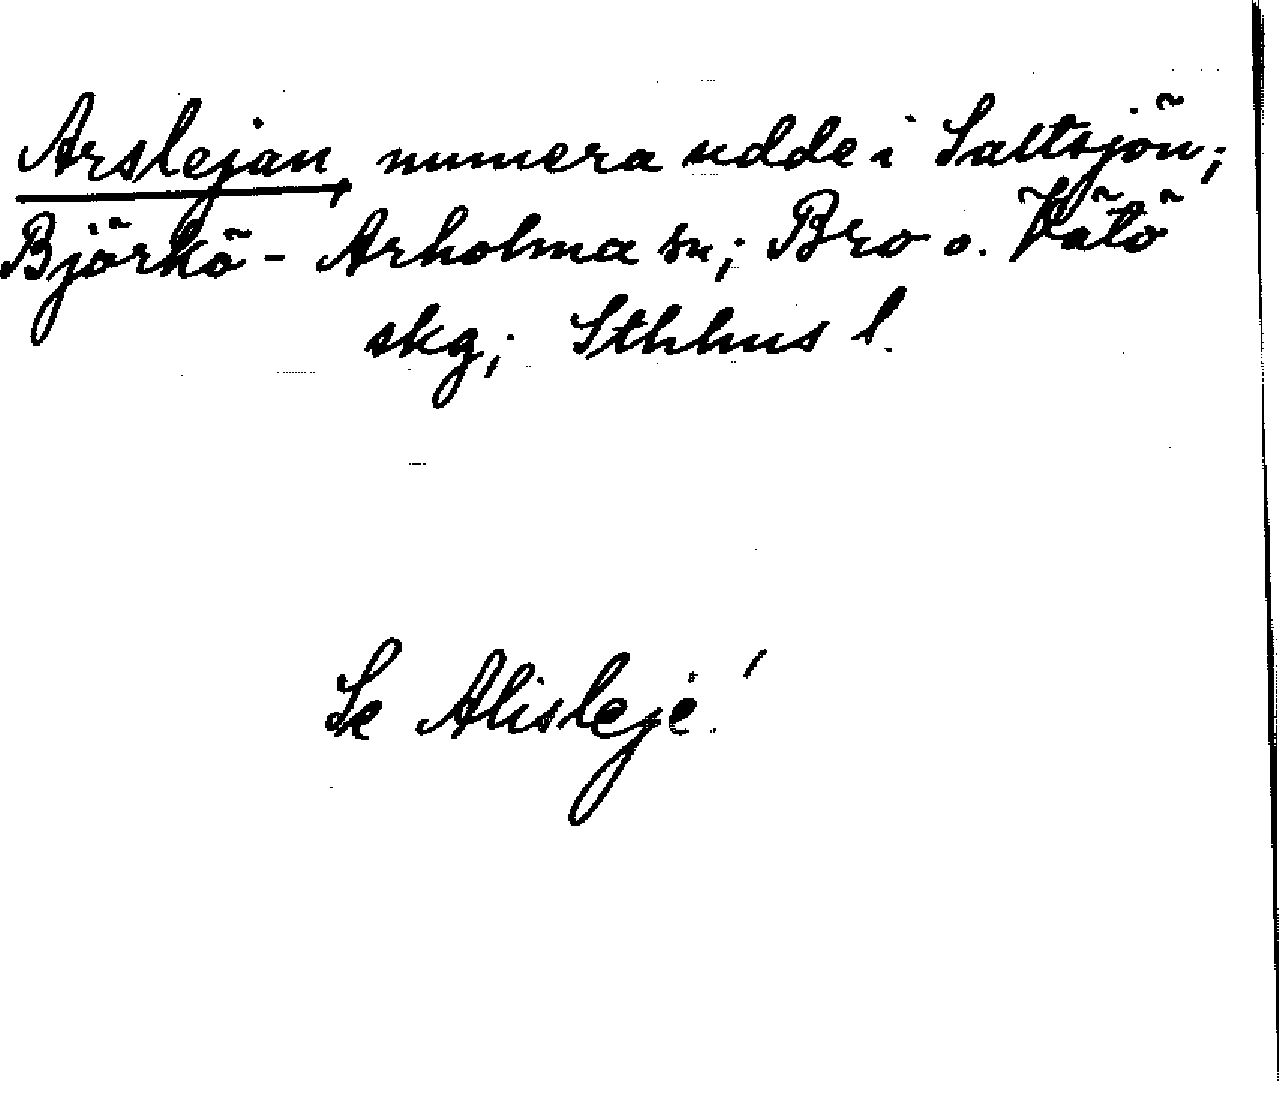 Arslejan, numera udde i Saltsjön;
Björkö - Arholma sn; Bro o. Vätö
skg; Sthlms l.
Se Alisleje!